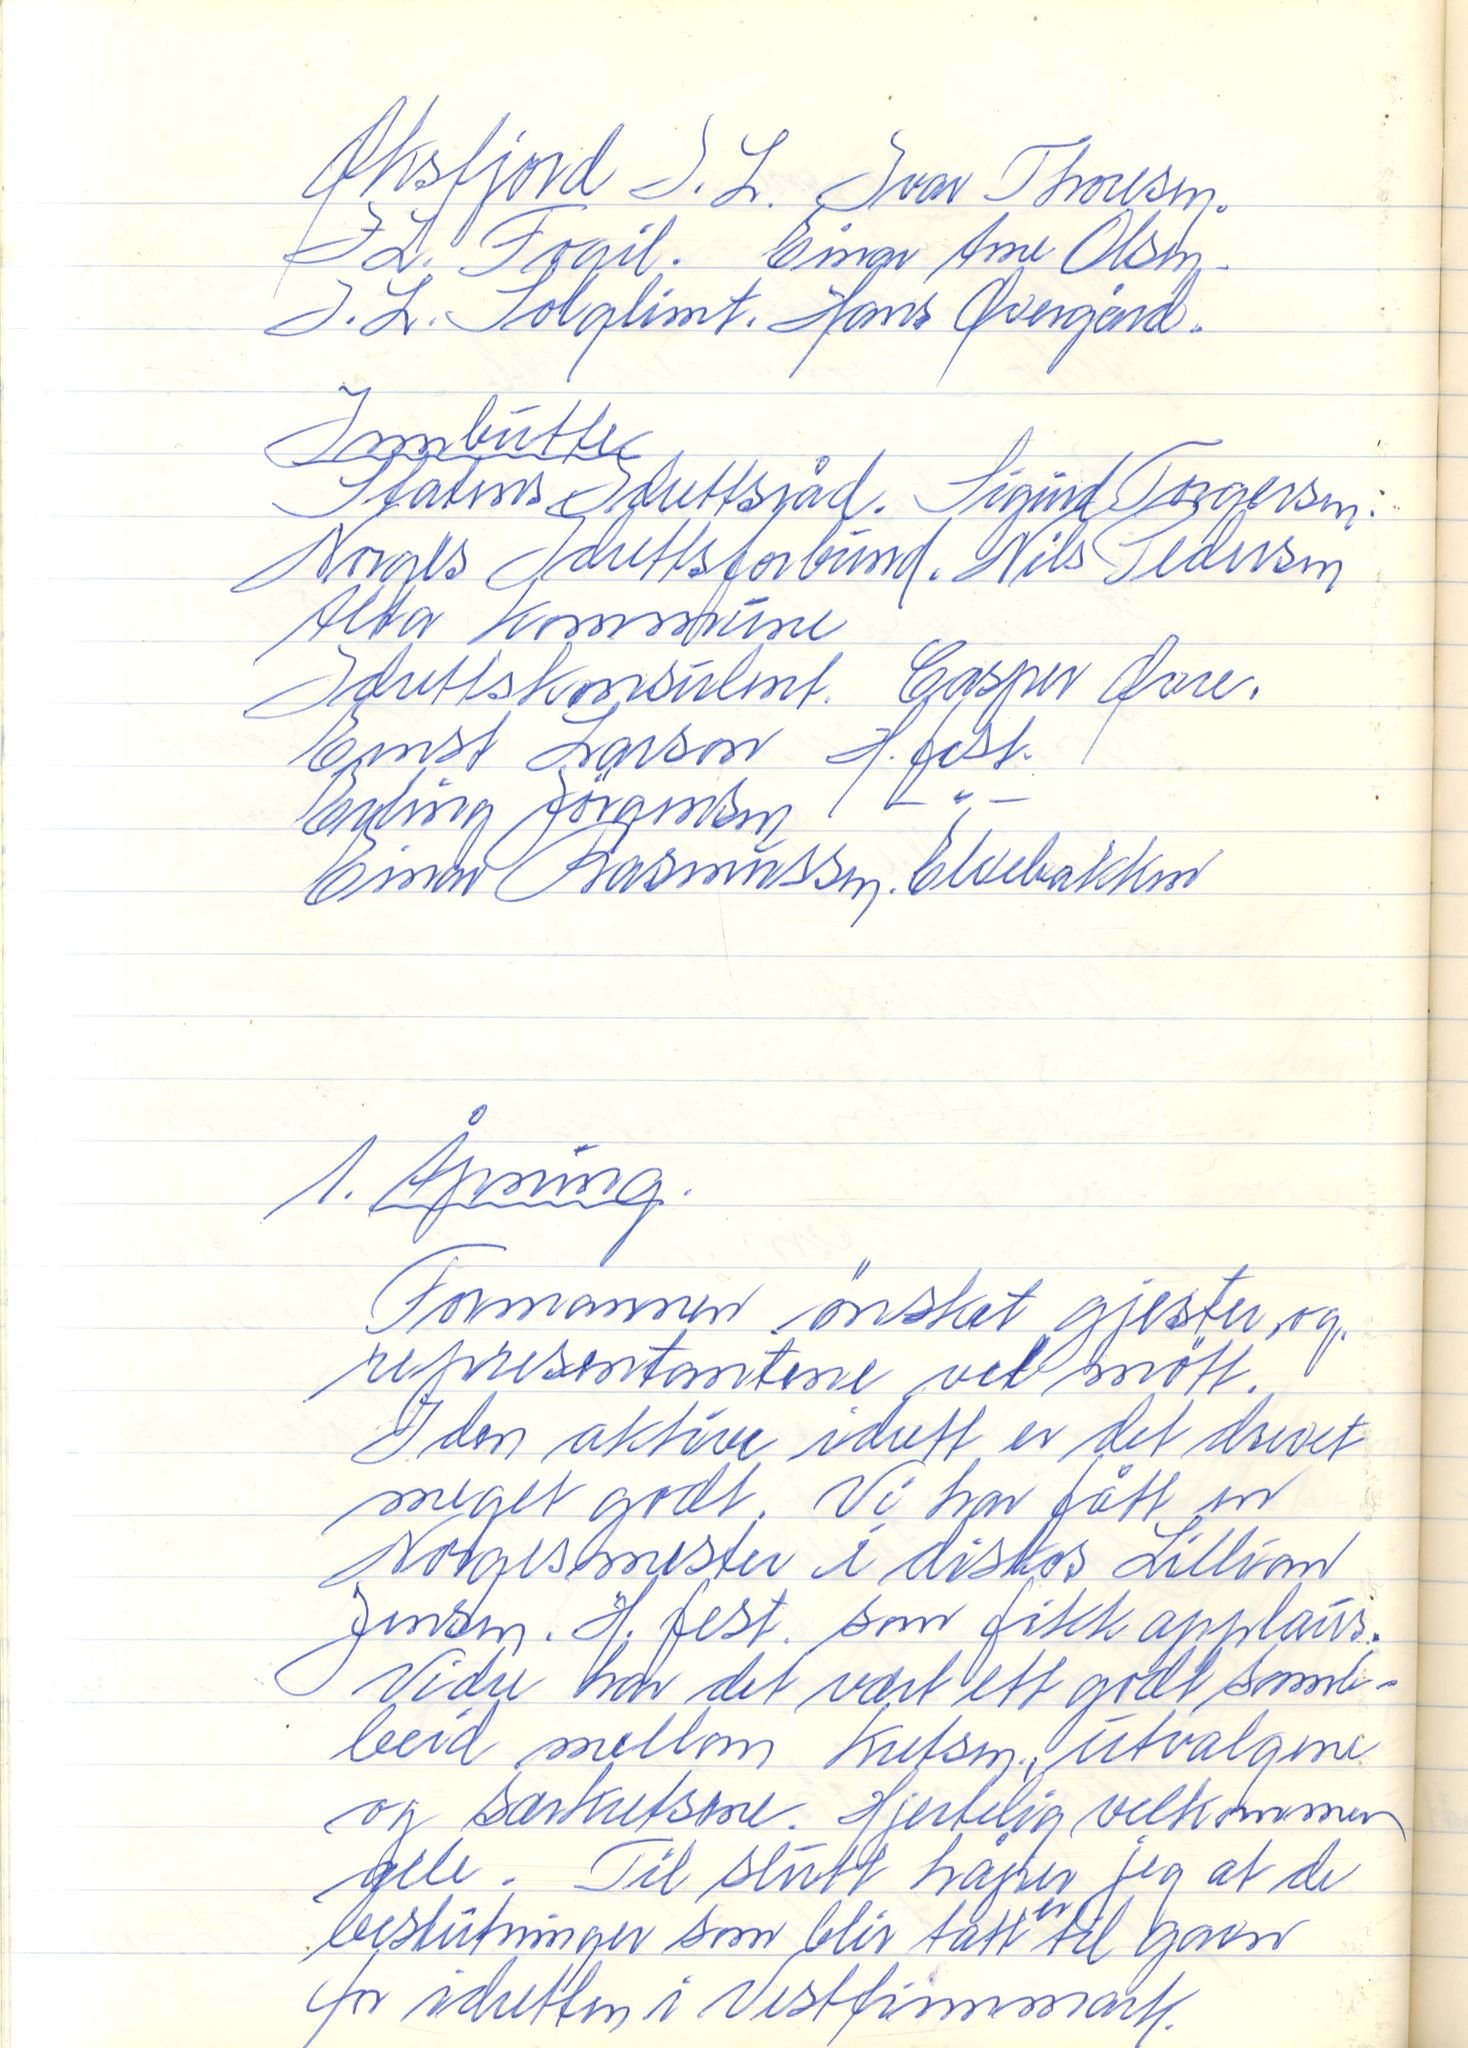 Øksfjord I. L. Ivar Thomsen.
I.L. Frail. Einar Arne Olsen.
I. L. Solglimt. Hans Øvergård.
Innbutte
Statens Idrettsråd. Sigurd Torgersen.
Norges Idrettsforbund. Nils Pedersen
Alta kommune
Idrettskonsulent. Casper Øvre.
Ernst Larsen H.fest.
Erling Jörgensen — " —
Einar Rasmussen. Elvebakken
1. Åpning.
Formannen önsket gjester og
representantene vel mött.
I den aktive idrett er det drevet
meget godt. Vi har fått en
Norgesmester i diskos Lillian
Jensen. H. fest. som fikk applaus.
Videre har det vært ett godt samar-
beid mellom kretsen, utvalgene
og særkretsene. Hjertelig velkommen
alle. Til slutt håper jeg at de
beslutninger som blir tatt er til gavn
for idretten i Vestfinnmark.